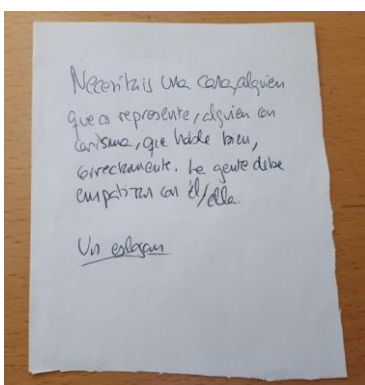 Necesitais una cara, alguien
que os represente, alguien con
carisma, que hable bien,
correctamente. La gente debe
empatizar con él/ella.
Un eslogan